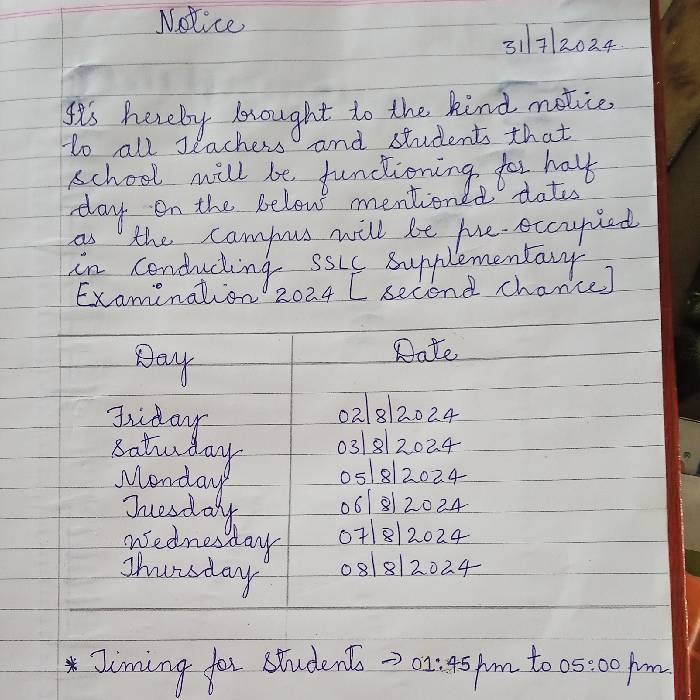 Notice
31/7/2024
It's hereby brought to the kind notice
to all Teachers and students that
school will be functioning for half
day on the below mentioned dates
as the campus will be pre-occupied
in conducting SSLC Supplementary
Examination 2024 [ second chance]
Day Date
Friday 02/8/2024
Saturday 03/8/2024
Monday 05/8/2024
Tuesday 06/8/2024
Wednesday 07/8/2024
Thursday 08/8/2024
* Timing for students → 01:45 pm to 05:00 pm